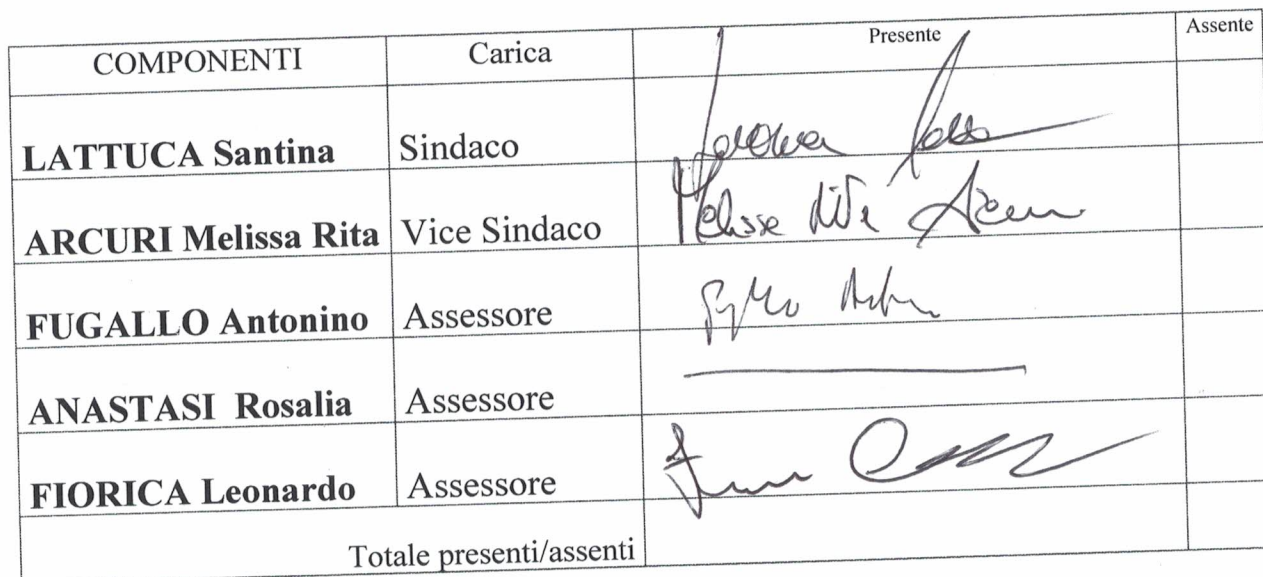 COMPONENTI Carica Presente Assente
LATTUCA Santina Sindaco
ARCURI Melissa Rita Vice Sindaco Melissa Rita Arcuri
FUGALLO Antonino Assessore
ANASTASI Rosalia Assessore
FIORICA Leonardo Assessore
Totale presenti/assenti